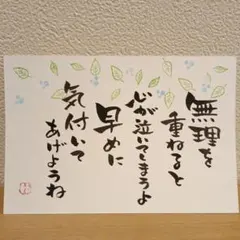 無理を
重ねると
心が泣いてしまうよ
早めに
気付いて
あげようね